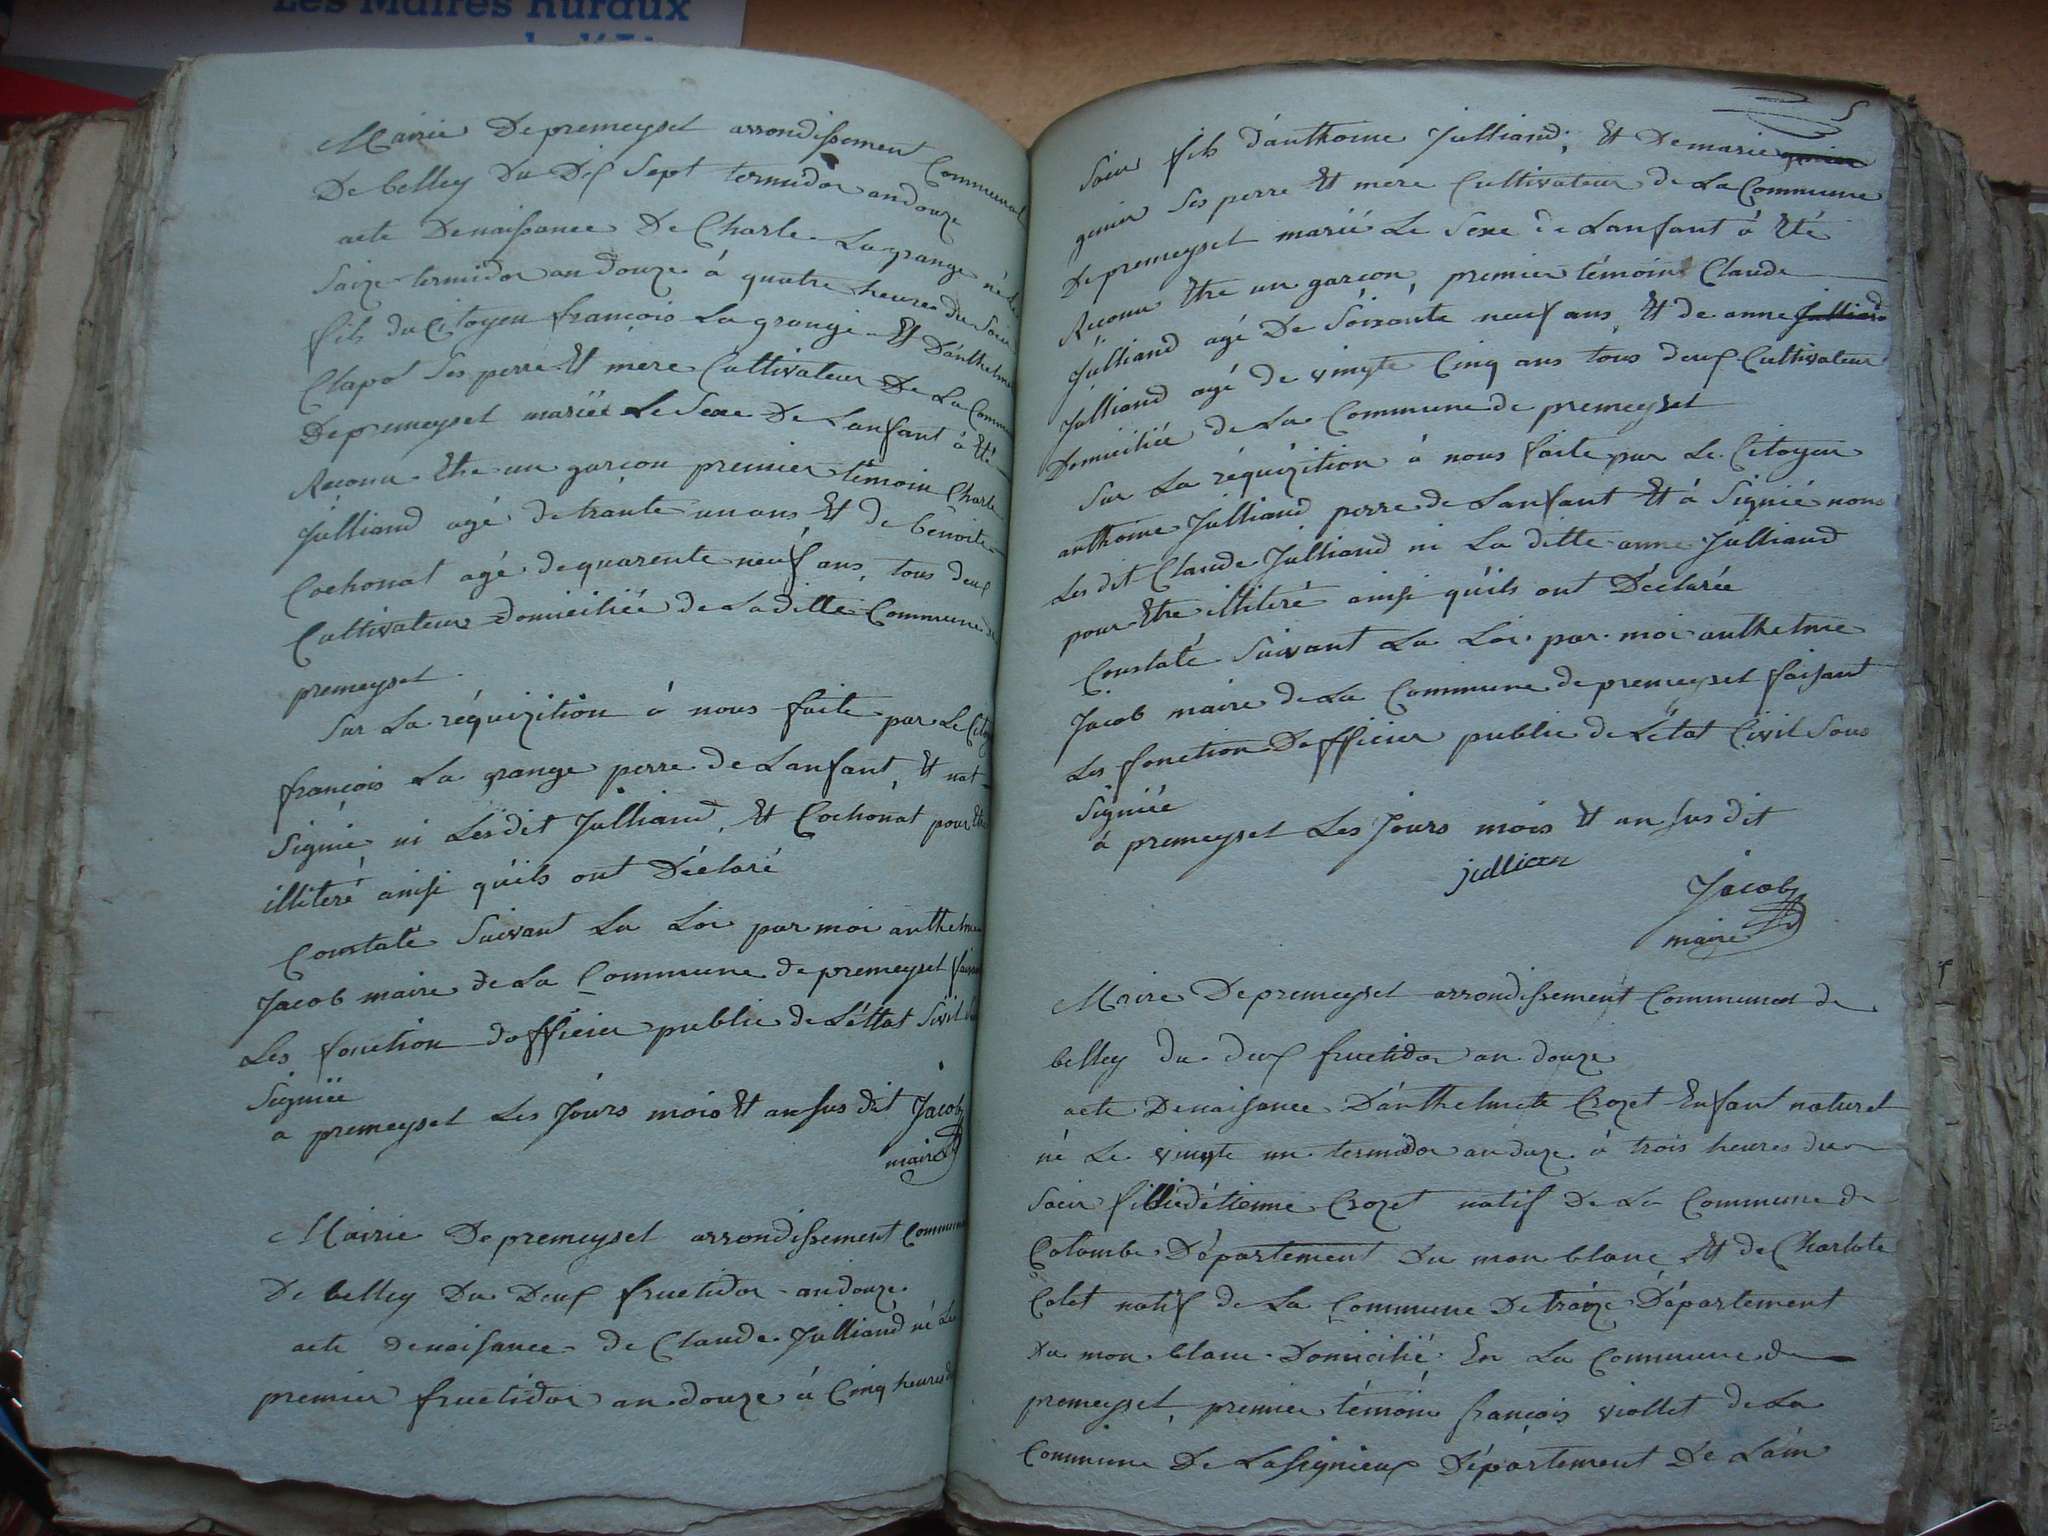 Les Maires Ruraux
Mairie De premeyset arrondissement Communal
De belley Du Dix Sept termidor an douze
acte De naissance De Charle La grange né Le
Saize termidor an douze à quatre heures du Soir
fils du Citoyen françois La grange Et D'anthelme
Clapot Ses perre Et mere Cultivateur De La Commune
De premeyset mariée Le Sexe De Lanfant à Eté
Reconu Etre un garcon premier témoin Charle
Julliand agé de trante un ans Et de benoite
Cochonat agé de quarente neuf ans, tous deux
Cultivateur Domiciliée de La ditte Commune de
premeyset
Sur La réquizition à nous faite par Le Citoy
françois La grange perre de Lanfant, Et nat
Signié ni Lesdit Julliand, Et Cochonat pour Etre
illiteré ainsi qu'ils ont Déclaré
Constaté Suivant La Loi par moi anthelme
Jacob maire de La Commune de premeyset faisant
Les fonction dofficier public de Léttat Sivil Sou
Signiée
a premeyset Les Jours mois Et an sus dit Jacob
maire
Mairie De premeyset arrondissement Communal
De belley Du Deux fructidor an douze
acte de naisance de Claude Julliand né Le
premier fructidor an douze à Cinq heures du
5
Soir fils d'anthoine Julliand, Et De marie
genin Ses perre Et mere Cultivateur de La Commune
De premeyset marié Le Sexe de Lanfant à Eté
Reconu Etre un garcon, premier témoin Claude
Julliand agé De Soixante neuf ans Et de anne Julliand
Julliand agé de vingte Cinq ans tous deux Cultivateur
Domiciliée de La Commune de premeyset
Sur La réquizition à nous faite par Le Citoyen
anthoine Julliand perre de Lanfant Et à Signié non
Les dit Claude Julliand ni La ditte anne Julliand
pour Etre illiteré ainsi qu'ils ont Déclarée
Constaté Suivant La Loi par moi anthelme
Jacob maire de La Commune de premeyset faisant
Les fonction Dofficier public de Létat Civil Sous
Signiée
à premeyset Les Jours mois Et an sus dit
jullian
Jacob
maire
Maire De premeyset arrondissement Communal de
belley du deux fructidor an douze
acte De naisance D'anthelmete Crozet Enfant naturel
né Le vingte un termidor an duze à trois heures du
Soir fillie d'étienne Crozet natif De La Commune de
Colombe Département Du mon blanc Et de Charlote
Colet natif de La Commune De Département
Du mon blanc Domicilié En La Commune de
premeyset, premier témoin françois viollet de La
Commune De Lassignieux Département De Lain